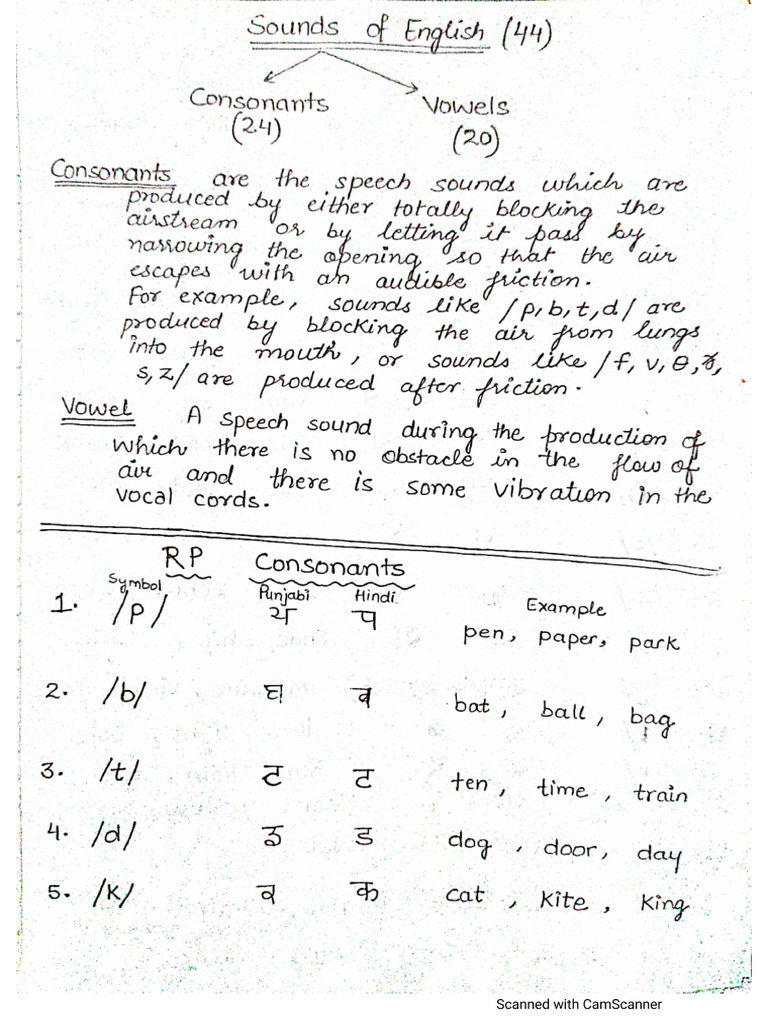 Sounds of English (44)
Consonants
(24)
Vowels
(20)
Consonants are the speech sounds which are
produced by either totally blocking the
airstream or by letting it pass by
narrowing the opening so that the air
escapes with an audible friction.
For example, sounds like /p,b,t,d/ are
produced by blocking the air from lungs
into the mouth, or sounds like /f, v, θ, ð,
s, z/ are produced after friction.
Vowel A speech sound during the production of
which there is no obstacle in the flow of
air and there is some vibration in the
vocal cords.
RP Consonants
Symbol Punjabi Hindi Example
1. /p/ ਪ प pen, paper, park
2. /b/ ਬ ब bat, ball, bag
3. /t/ ਟ ट ten, time, train
4. /d/ ਡ ड dog, door, day
5. /k/ ਕ क cat, kite, king
Scanned with CamScanner